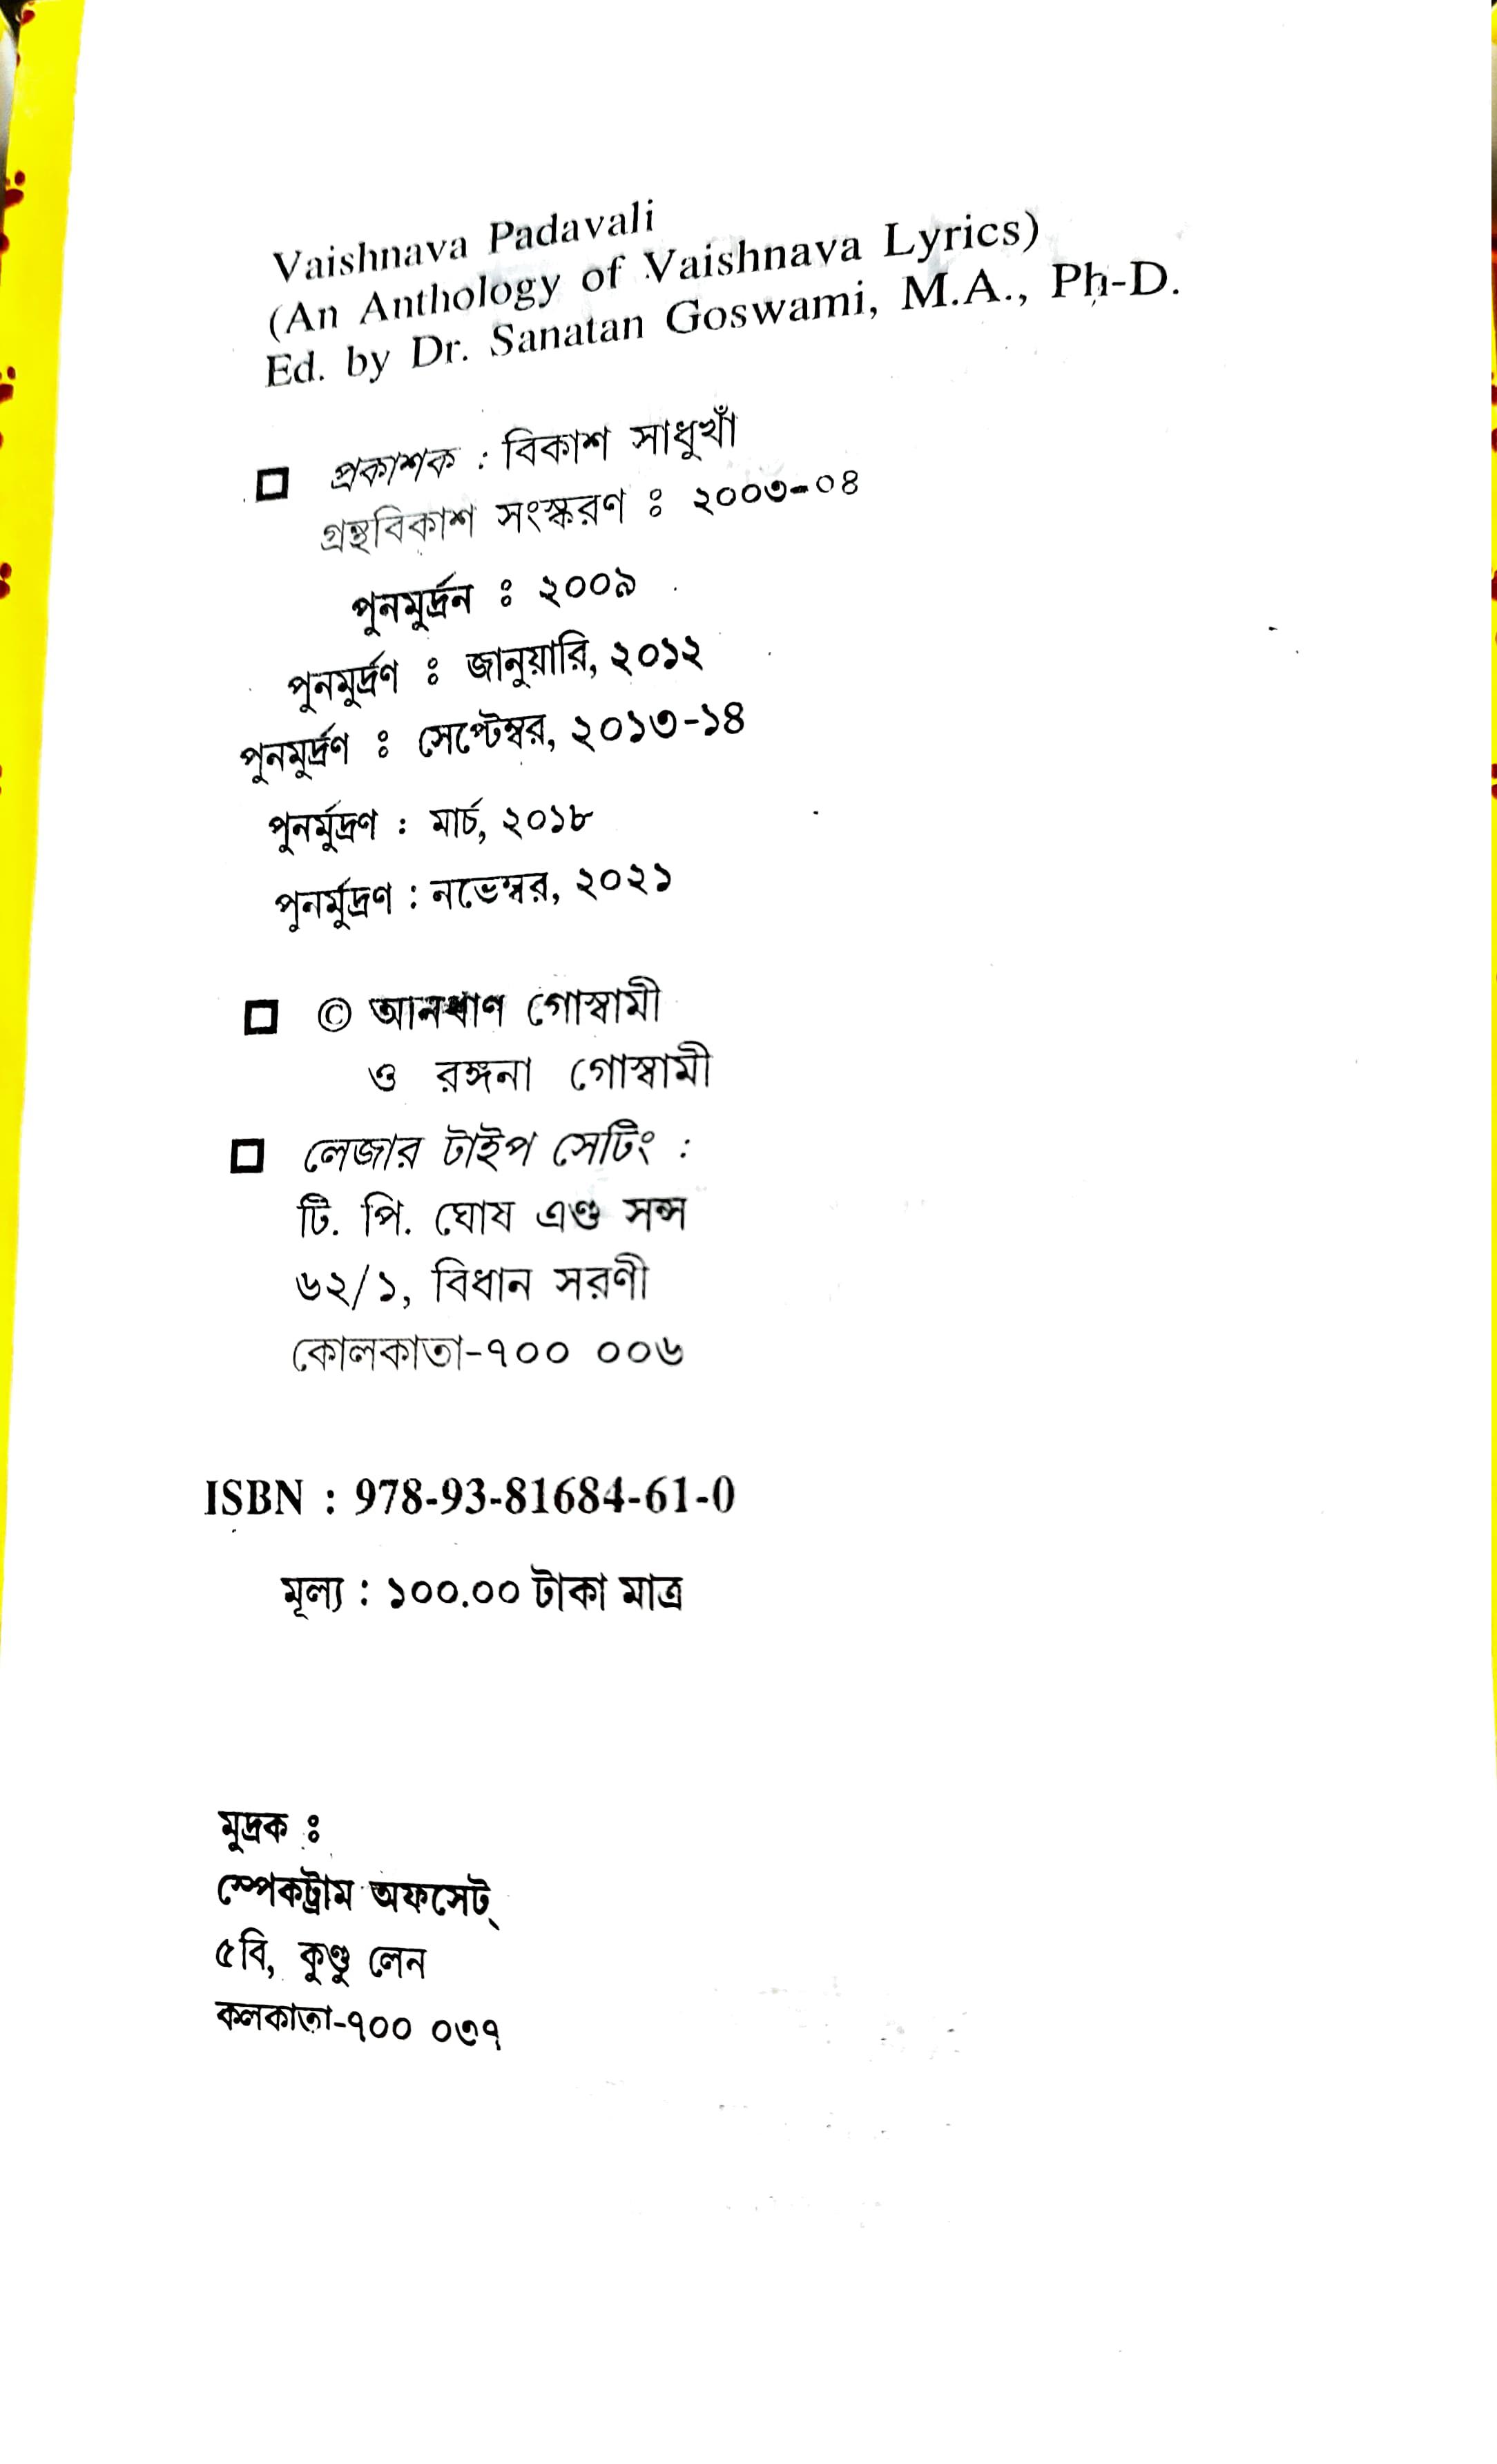 Vaishnava Padavali
(An Anthology of Vaishnava Lyrics)
Ed. by Dr. Sanatan Goswami, M.A., Ph-D.
প্রকাশক : বিকাশ সাধুখাঁ
গ্রন্থবিকাশ সংস্করণ ঃ ২০০৩-০৪
পুনমুর্দ্রন ঃ ২০০৯
পুনমুর্দ্রণ ঃ জানুয়ারি, ২০১২
পুনমুর্দ্রণ ঃ সেপ্টেম্বর, ২০১৩-১৪
পুনর্মুদ্রণ : মার্চ, ২০১৮
পুনর্মুদ্রণ : নভেম্বর, ২০২১
© গোস্বামী
ও রঙ্গনা গোস্বামী
লেজার টাইপ সেটিং :
টি. পি. ঘোষ এণ্ড সন্স
৬২/১, বিধান সরণী
কোলকাতা-৭০০ ০০৬
ISBN : 978-93-81684-61-0
মূল্য : ১০০.০০ টাকা মাত্র
মুদ্রক ঃ
স্পেকট্রাম অফসেট্
৫বি, কুণ্ডু লেন
কলকাতা-৭০০ ০৩৭